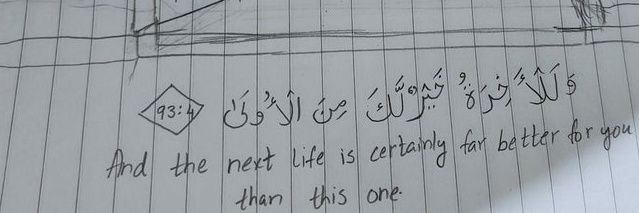 وَلَلْأَخِرَةُ خَيْرٌ لَّكَ مِنَ الْأُولَىٰ 93:4
And the next life is certainly far better for you
than this one.